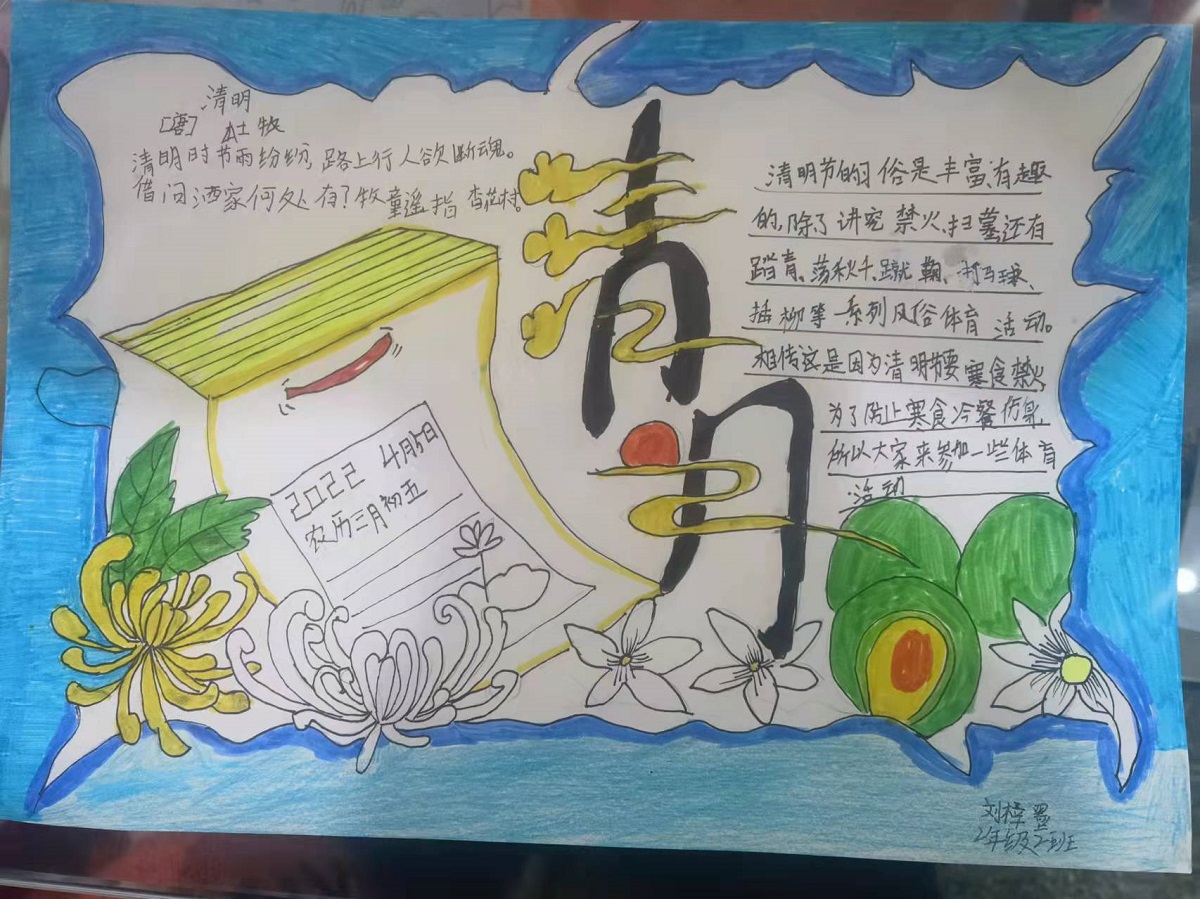 清明
[唐] 杜牧
清明时节雨纷纷，路上行人欲断魂。
借问酒家何处有？牧童遥指杏花村。
清明
2022 4月5日
农历三月初五
清明节的习俗是丰富有趣
的，除了讲究禁火、扫墓，还有
踏青、荡秋千、蹴鞠、打马球、
插柳等系列风俗体育活动。
相传这是因为清明节要寒食禁火
为了防止寒食冷餐伤身，
所以大家来参加一些体育
活动
刘梓墨
2年级2班